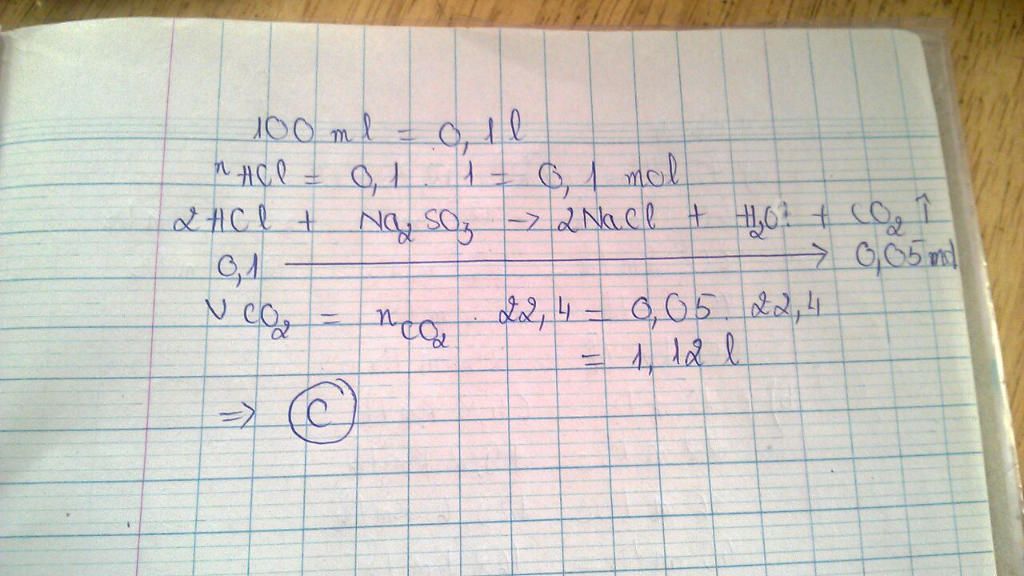 100 ml = 0,1 l
nHCl = 0,1 . 1 = 0,1 mol
2HCl + Na2SO3 → 2NaCl + H2O + CO2 ↑
0,1 → 0,05 mol
VCO2 = nCO2 . 22,4 = 0,05 . 22,4
= 1,12 l
=> C